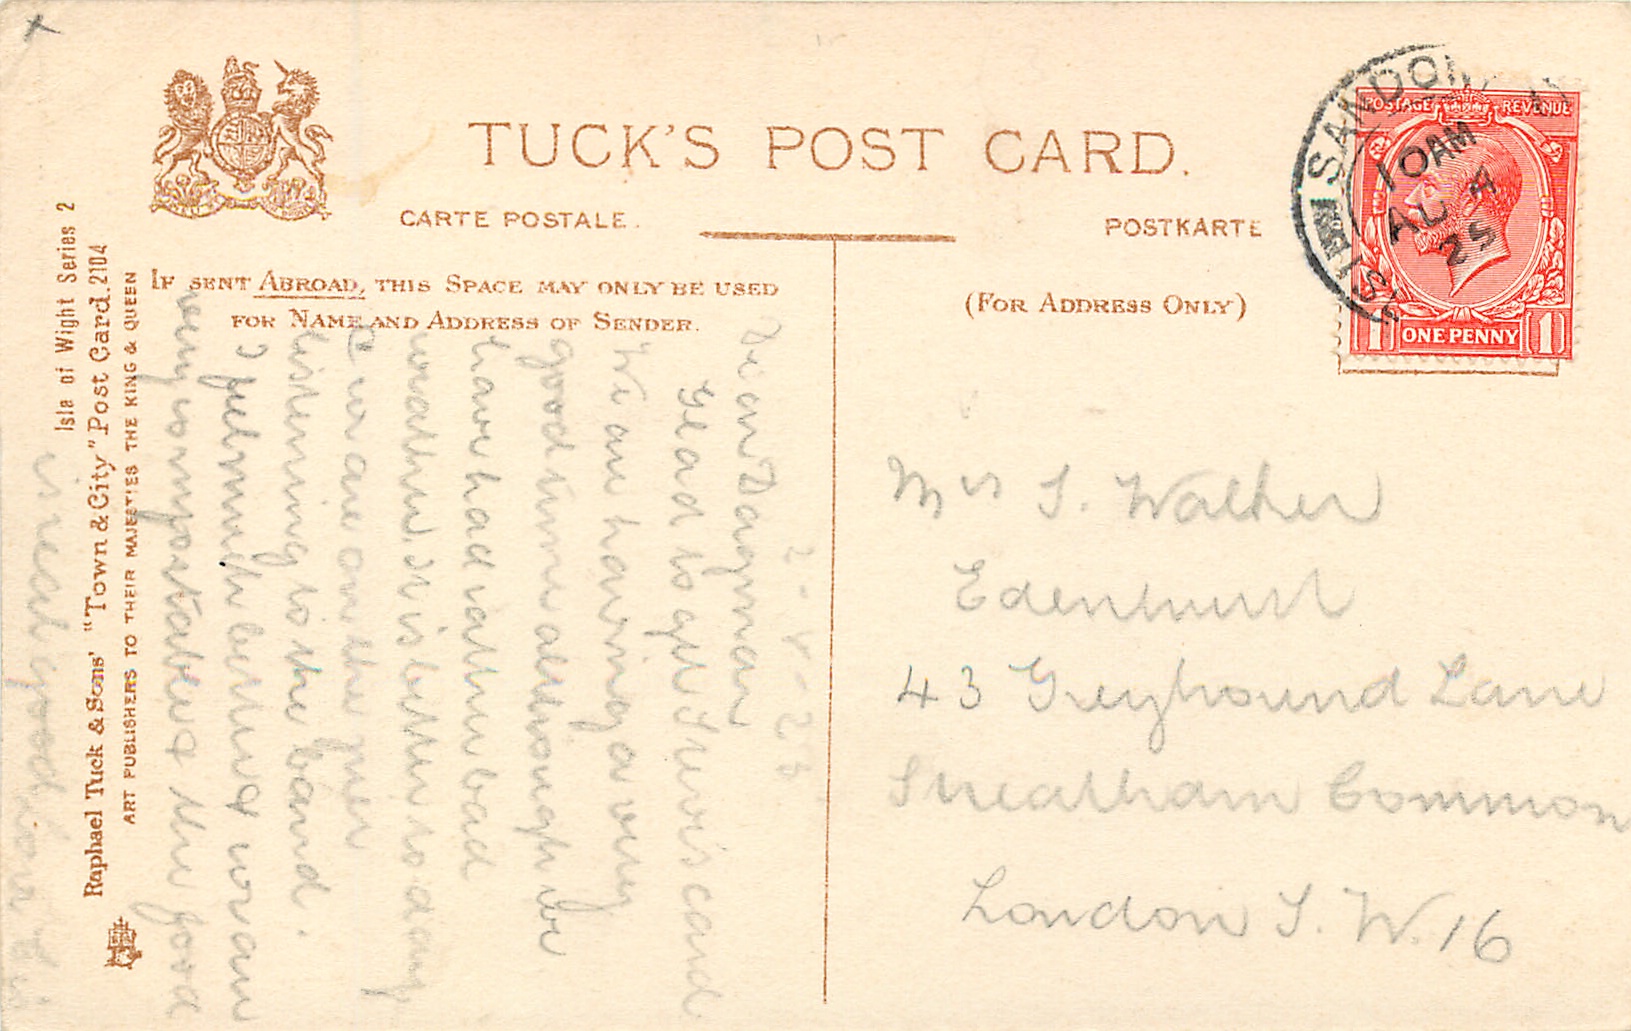 TUCK'S POST CARD.
CARTE POSTALE.
POSTKARTE
IF SENT ABROAD, THIS SPACE MAY ONLY BE USED
FOR NAME AND ADDRESS OF SENDER.
(FOR ADDRESS ONLY)
Isle of Wight Series 2
Raphael Tuck & Sons' "Town & City" Post Card. 2104
ART PUBLISHERS TO THEIR MAJESTIES THE KING & QUEEN
POSTAGE REVENUE
ONE PENNY
1 1
SANDOWN
10 AM
AU 4
25
Dear Dagmar
Glad to get card
We are having a very
good time although we
have had rather bad
weather. It is better to day
& we are on the pier
listening to the band.
I feel much better & we are
very comfortable & the food
is real good
Mrs S. Walker
Edenhurst
43 Greyhound Lane
Streatham Common
London S.W. 16